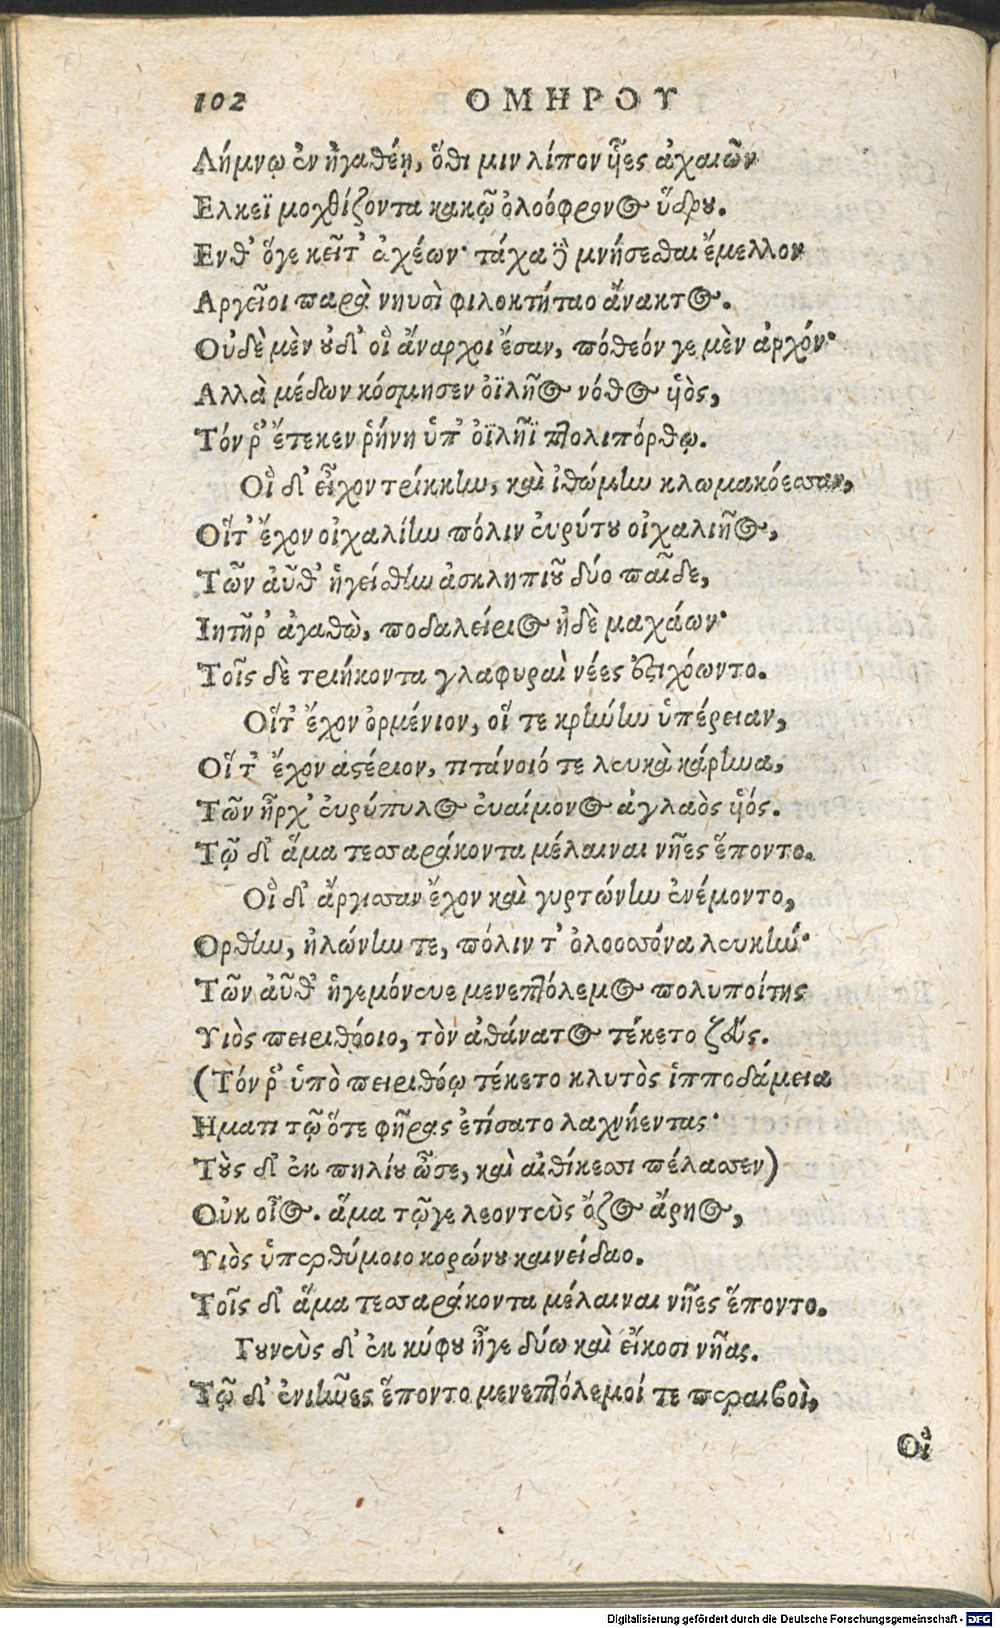 102 ΟΜΗΡΟΥ
Λήμνῳ ἐν ἠγαθέῃ, ὅθι μιν λίπον ἧες ἀχαιῶν
Ελκεϊ μοχθίζοντα κακῷ ὀλοόφρονος ὕδρου.
Ενθ' ὅγε κεῖτ' ἀχέων· τάχα ἢ μνήσεσθαι ἔμελλον
Αργεῖοι παρὰ νηυσὶ φιλοκτήταο ἄνακτος.
Οὐδὲ μὲν οὐδ' οἳ ἄναρχοι ἔσαν, πόθεόν γε μὲν ἀρχόν·
Αλλὰ μέδων κόσμησεν ὀϊλῆος νόθος ὑὸς,
Τόν ῥ' ἔτεκεν ῥήνη ὑπ' ὀϊλῆϊ πτολιπόρθῳ.
Οἳ δ' εἶχον τρίκκην, καὶ ἰθώμην κλωμακόεσσαν,
Οἵτ' ἔχον οἰχαλίην πόλιν εὐρύτου οἰχαλιῆος,
Τῶν αὖθ' ἡγείσθην ἀσκληπιοῦ δύο παῖδε,
Ιητῆρ' ἀγαθὼ, ποδαλείριος ἠδὲ μαχάων·
Τοῖς δὲ τριήκοντα γλαφυραὶ νέες ἐστιχόωντο.
Οἵτ' ἔχον ὀρμένιον, οἵ τε κρήνην ὑπέρειαν,
Οἵ τ' ἔχον αστέριον, τιτάνοιό τε λευκὰ κάρηνα,
Τῶν ἦρχ' εὐρύπυλος εὐαίμονος ἀγλαὸς ὑός.
Τῷ δ' ἅμα τεσσαράκοντα μέλαιναι νῆες ἕποντο.
Οἳ δ' ἄργισσαν ἔχον καὶ γυρτώνην ἐνέμοντο,
Ορθην, ἠλώνην τε, πόλιν τ' ὀλοοσσόνα λευκήν·
Τῶν αὖθ' ἡγεμόνευε μενεπτόλεμος πολυποίτης
Υιὸς πειριθόοιο, τὸν ἀθάνατος τέκετο ζεύς.
(Τόν ῥ' ὑπὸ πειριθόῳ τέκετο κλυτὸς ἱπποδάμεια
Ηματι τῷ ὅτε φῆρας ἐτίσατο λαχνήεντας·
Τοὺς δ' ἐκ πηλίου ὦσε, καὶ αἰθίκεσσι πέλασσεν)
Οὐκ οἶος. ἅμα τῷγε λεοντεὺς ὄζος ἄρηος,
Υιὸς ὑπερθύμοιο κορώνου καινείδαο.
Τοῖς δ' ἅμα τεσσαράκοντα μέλαιναι νῆες ἕποντο.
Γουνεὺς δ' ἐκ κύφου ἦγε δύω καὶ εἴκοσι νῆας.
Τῷ δ' ἐνιῆνες ἕποντο μενεπτόλεμοί τε περαιβοὶ,
Οἳ
Digitalisierung gefördert durch die Deutsche Forschungsgemeinschaft - DFG